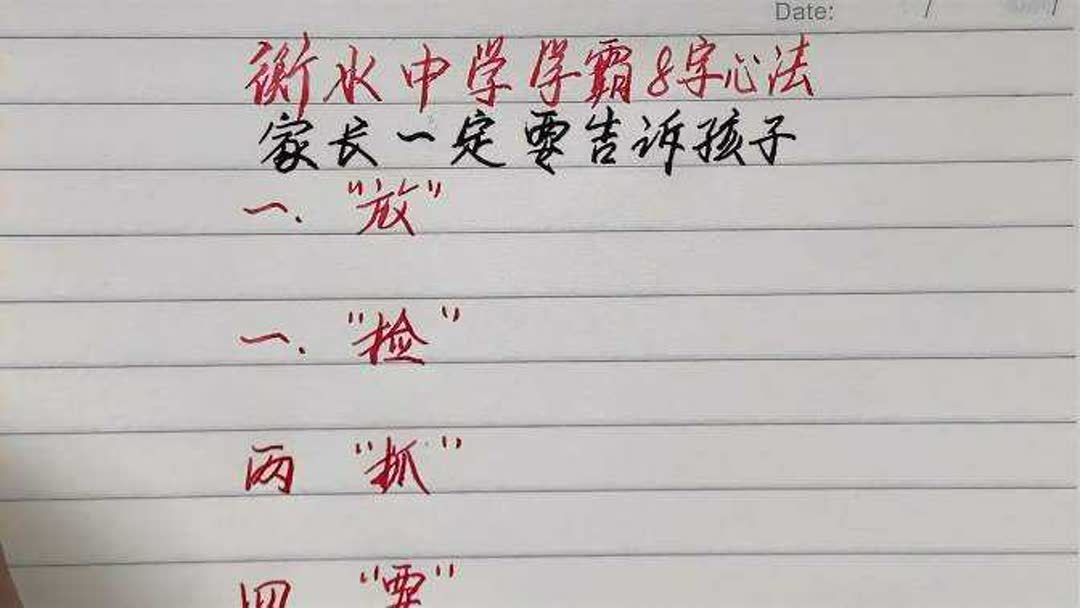 Date: / /
衡水中学学霸8字心法
家长一定要告诉孩子
一. "放"
一. "捡"
两 "抓"
四 "要"